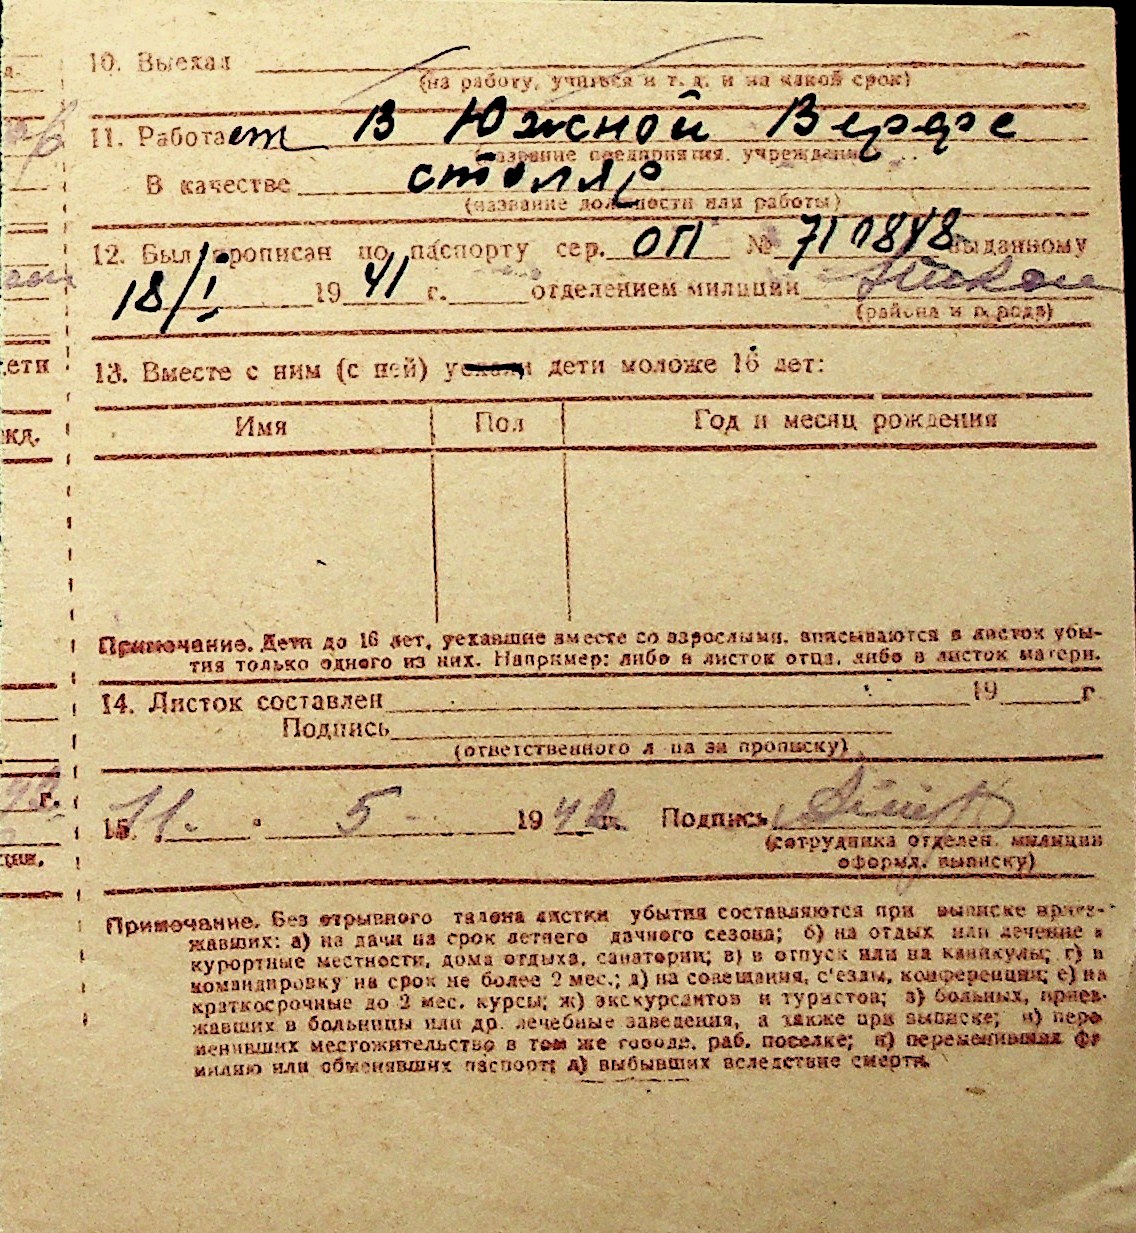 10. Выехал
(на работу, учиться и т. д. и на какой срок)
11. Работает в Южной Верфе
(название предприятия, учреждения)
В качестве столяр
(название должности или работы)
12. Был прописан по паспорту сер. ОП № 710848 выданному
18/I 1941 г. отделением милиции
(района и города)
13. Вместе с ним (с ней) уехали дети моложе 16 лет:
Имя Пол Год и месяц рождения
Примечание. Дети до 16 лет, уехавшие вместе со взрослыми, вписываются в листок убы-
тия только одного из них. Например: либо в листок отца, либо в листок матери.
14. Листок составлен 19 г
Подпись
(ответственного л ца за прописку)
15 11. 5 1942 г. Подпись
(сотрудника отделен. милиции
оформл. выписку)
Примечание. Без отрывного талона листки убытия составляются при выписке приез-
жавших: а) на дачи на срок летнего дачного сезона; б) на отдых или лечение в
курортные местности, дома отдыха, санатории; в) в отпуск или на каникулы; г) в
командировку на срок не более 2 мес.; д) на совещания, с'езды, конференции; е) на
краткосрочные до 2 мес. курсы; ж) экскурсантов и туристов; з) больных, приез-
жавших в больницы или др. лечебные заведения, а также при выписке; и) пере
менивших местожительство в том же городе, раб. поселке; к) переменивших фа
милию или обменявших паспорт; л) выбывших вследствие смерти.